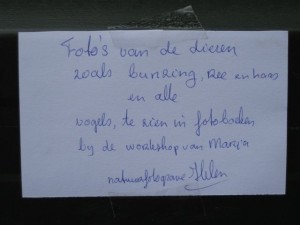 Foto's van de dieren
zoals bunzing, Ree en haas
en alle
vogels, te zien in fotoboeken
by de workshop van Marya
natuurfotograve Helen